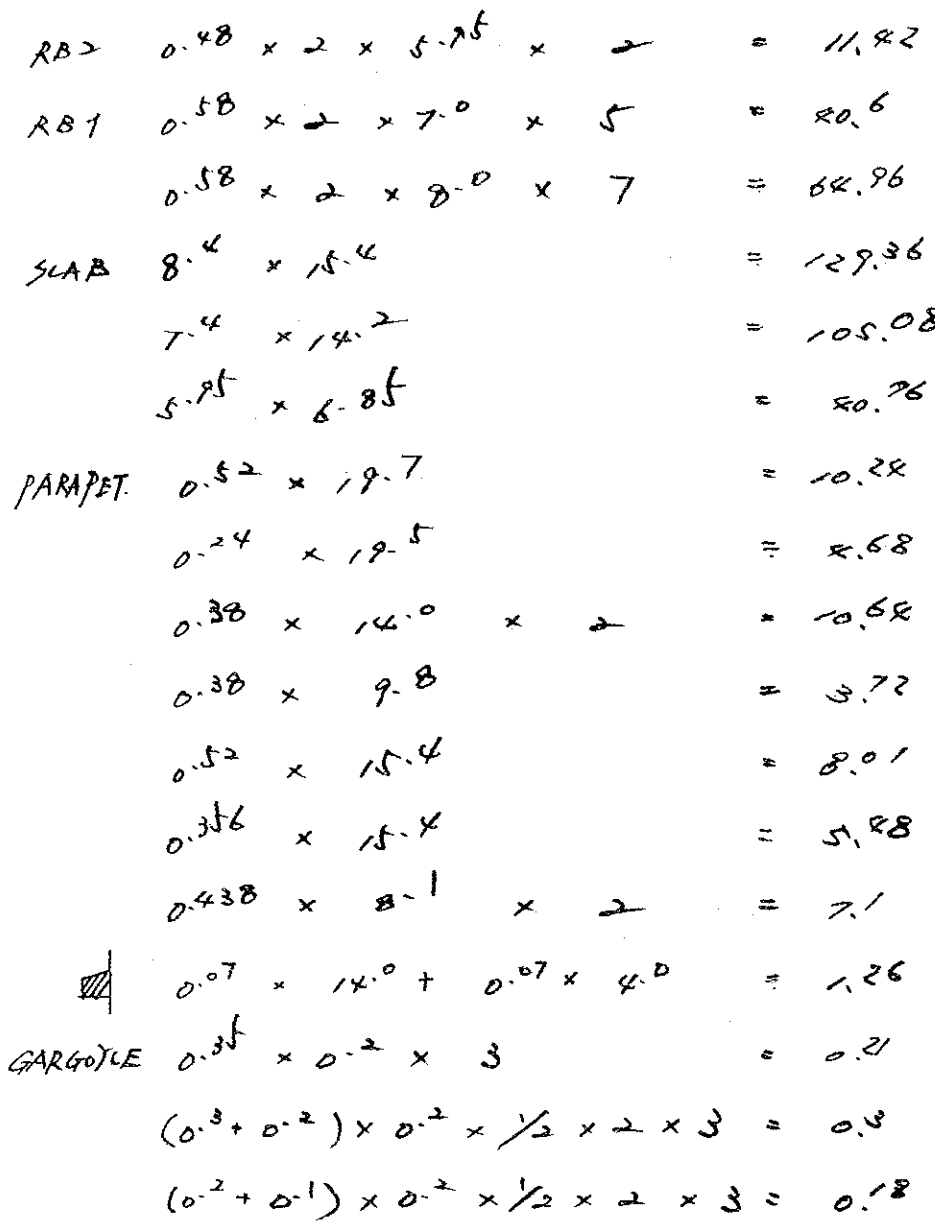 RB2 0.48 × 2 × 5.95 × 2 = 11.42
RB1 0.58 × 2 × 7.0 × 5 = 40.6
0.58 × 2 × 8.0 × 7 = 64.96
SLAB 8.4 × 15.4 = 129.36
7.4 × 14.2 = 105.08
5.95 × 6.85 = 40.76
PARAPET. 0.52 × 19.7 = 10.24
0.24 × 19.5 = 4.68
0.38 × 14.0 × 2 = 10.64
0.38 × 9.8 = 3.72
0.52 × 15.4 = 8.01
0.356 × 15.4 = 5.48
0.438 × 8.1 × 2 = 7.1
0.07 × 14.0 + 0.07 × 4.0 = 1.26
GARGOYLE 0.35 × 0.2 × 3 = 0.21
(0.3 + 0.2) × 0.2 × 1/2 × 2 × 3 = 0.3
(0.2 + 0.1) × 0.2 × 1/2 × 2 × 3 = 0.18